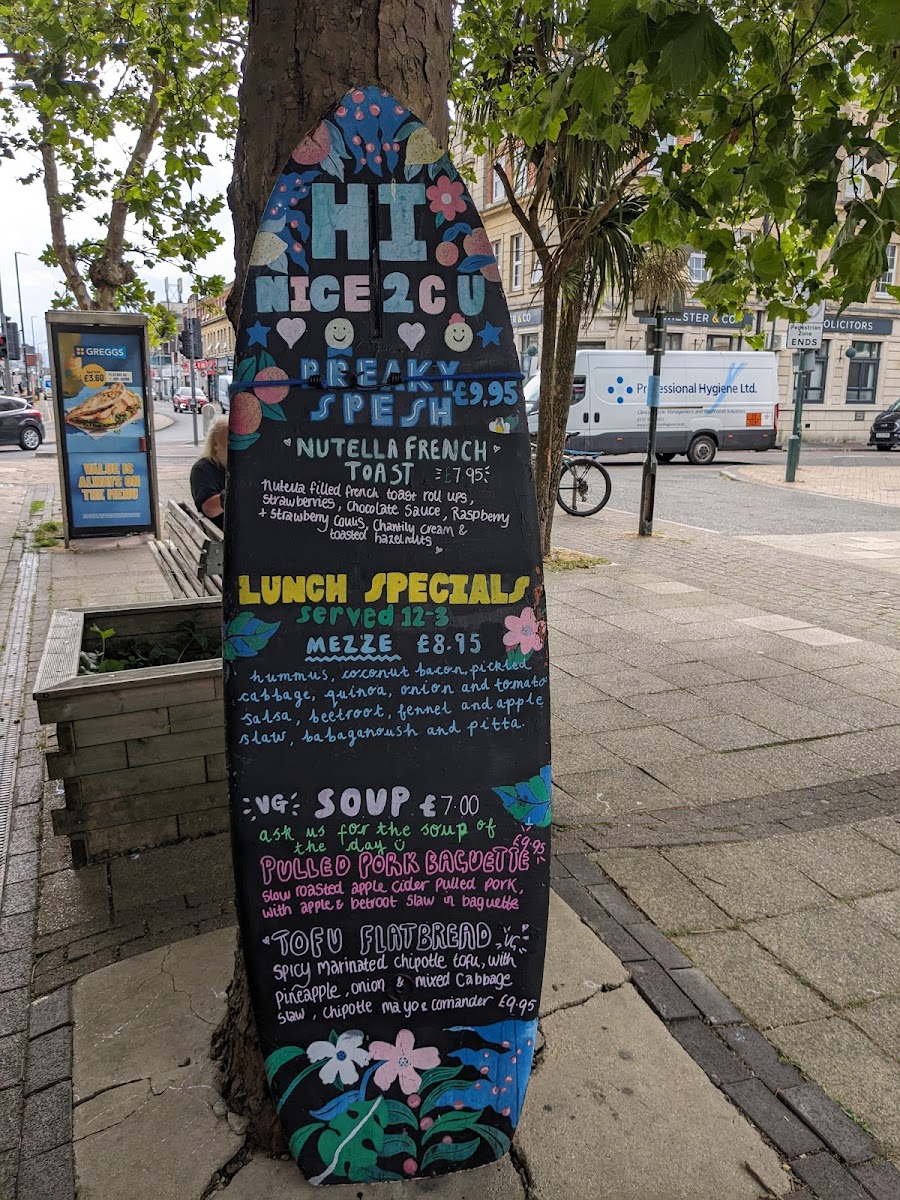 HI
NICE 2 C U
BREAKY
SPESH £9,95
NUTELLA FRENCH
TOAST £7.95
Nutella filled french toast roll ups,
Strawberries, Chocolate Sauce, Raspberry
+ Strawberry Coulis, Chantily cream &
toasted hazelnuts
LUNCH SPECIALS
served 12-3
MEZZE £8.95
hummus, coconut bacon, pickled
cabbage, quinoa, onion and tomato
salsa, beetroot, fennel and apple
slaw, babaganoush and pitta.
VG SOUP £7.00
ask us for the soup of
the day
£9.95
PULLED PORK BAGUETTE
Slow roasted apple cider pulled pork,
with apple & betroot slaw in baguette
TOFU FLATBREAD VG
Spicy marinated chipotle tofu, with
pineapple, onion & mixed Cabbage
slaw, chipotle mayo & corriander £9.95
GREGGS
£3.60
VALUE IS
ALWAYS ON
THE MENU
Professional Hygiene Ltd.
& CO
ESTER & CO
SOLICITORS
Pedestrian
Zone
ENDS